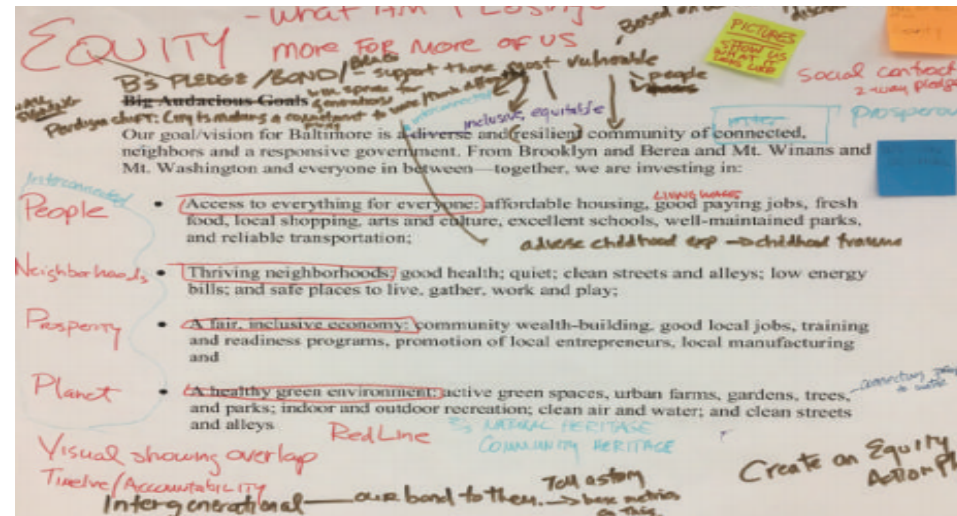 - WHAT AM I LOSING
EQUITY more FOR MORE OF US
Based on
PICTURES
SHOW US
WHAT IT
LOOKS LIKE
B's PLEDGE/BOND/
- support those most vulnerable
people
social contract
2-way pledge
Big Audacious Goals
generations
Paradigm shift: City is making a commitment to
interconnected
inclusive, equitable
prosperou
Our goal/vision for Baltimore is a diverse and resilient community of connected,
neighbors and a responsive government. From Brooklyn and Berea and Mt. Winans and
Mt. Washington and everyone in between—together, we are investing in:
Interconnected
People
LIVING WAGES
• Access to everything for everyone: affordable housing, good paying jobs, fresh
food, local shopping, arts and culture, excellent schools, well-maintained parks,
and reliable transportation;
adverse childhood exp → childhood trauma
Neighborhoods
• Thriving neighborhoods; good health; quiet; clean streets and alleys; low energy
bills; and safe places to live, gather, work and play;
Prosperity
• A fair, inclusive economy: community wealth-building, good local jobs, training
and readiness programs, promotion of local entrepreneurs, local manufacturing
and
Planet
• A healthy green environment: active green spaces, urban farms, gardens, trees,
and parks; indoor and outdoor recreation; clean air and water; and clean streets
and alleys
connecting
to
Red Line
B's NATURAL HERITAGE
COMMUNITY HERITAGE
Visual showing overlap
Timeline/Accountability
Create an Equity
Action Pl
Intergenerational — our bond to them.
Tell a story
→ base metrics
on this